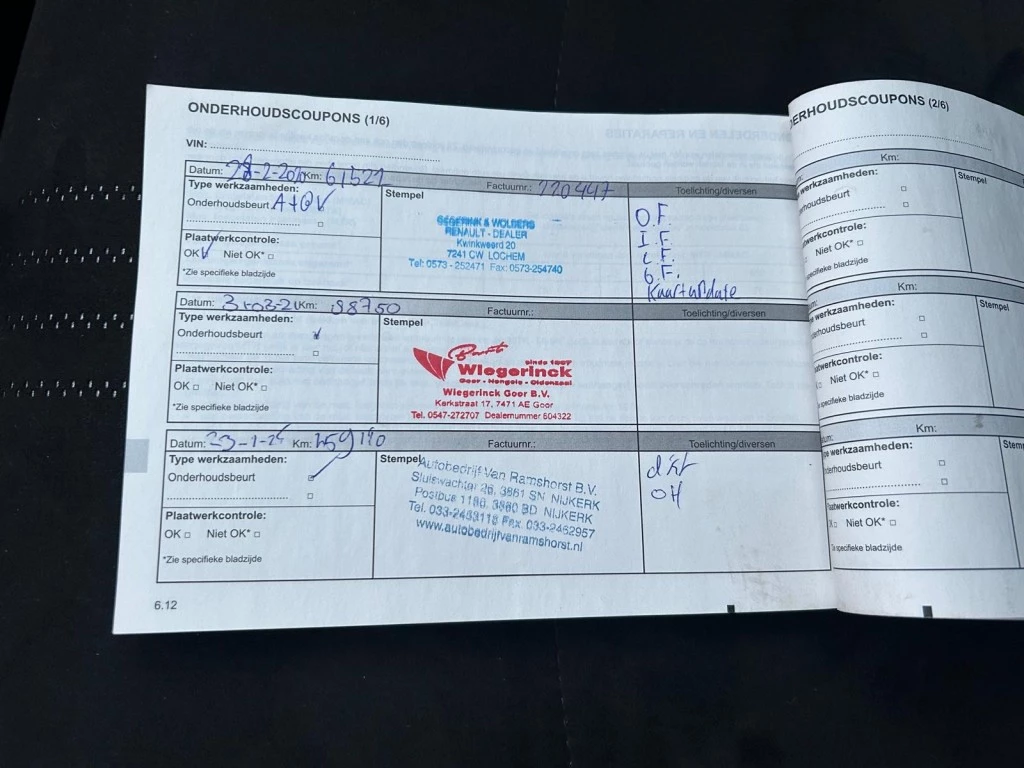 ONDERHOUDSCOUPONS (1/6)
VIN:
Datum: Km: 61521 Factuurnr.: Toelichting/diversen
Type werkzaamheden:
Onderhoudsbeurt A+OV
Plaatwerkcontrole:
OK Niet OK*
*Zie specifieke bladzijde
Stempel
GEGERINK & WOLBERS
RENAULT - DEALER
Kwinkweerd 20
7241 CW LOCHEM
Tel: 0573 - 252471 Fax: 0573-254740
O.F.
I.F.
Kaartupdate
Datum: Km: 98750 Factuurnr.: Toelichting/diversen
Type werkzaamheden:
Onderhoudsbeurt
Plaatwerkcontrole:
OK Niet OK*
*Zie specifieke bladzijde
Stempel
sinds 1887
Wiegerinck
Goor - Hengelo - Oldenzaal
Wiegerinck Goor B.V.
Kerkstraat 17, 7471 AE Goor
Tel. 0547-272707 Dealernummer 604322
Datum: Km: 159110 Factuurnr.: Toelichting/diversen
Type werkzaamheden:
Onderhoudsbeurt
Plaatwerkcontrole:
OK Niet OK*
*Zie specifieke bladzijde
Stempel
Autobedrijf Van Ramshorst B.V.
Sluiswachter 26, 3861 SN NIJKERK
Postbus 1186, 3860 BD NIJKERK
Tel. 033-2453118 Fax 033-2462957
www.autobedrijfvanramshorst.nl
OH
6.12
ERHOUDSCOUPONS (2/6)
Km:
werkzaamheden:
Stempel
Niet OK*
Km:
werkzaamheden:
Stempel
Niet OK*
specifieke bladzijde
Km:
werkzaamheden:
Niet OK*
specifieke bladzijde